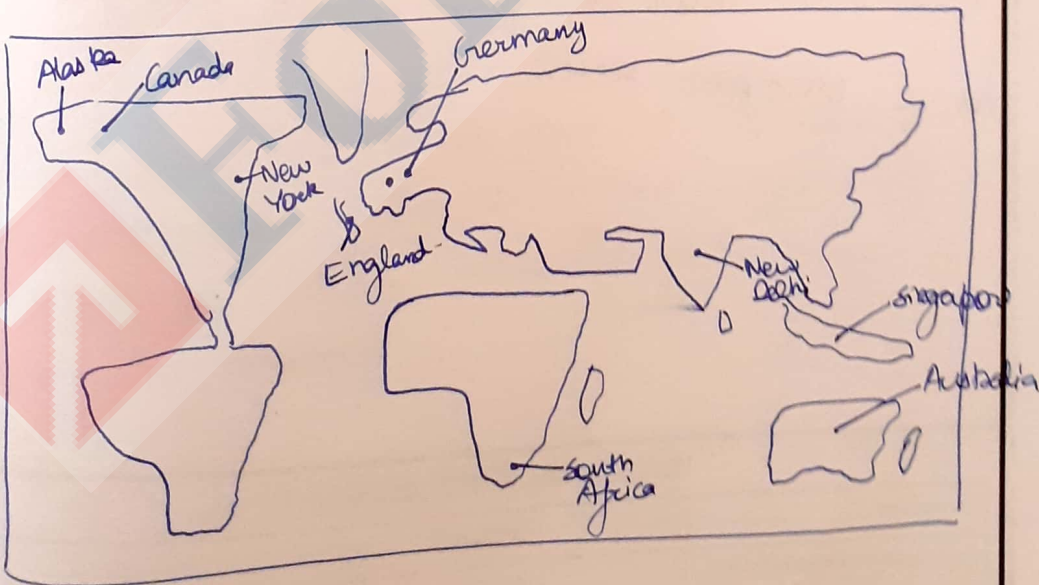 Alaska
Canada
Germany
New
York
England
New
Delhi
Singapore
Australia
South
Africa